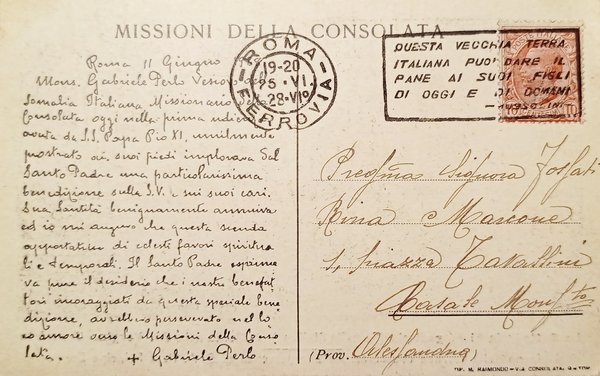 MISSIONI DELLA CONSOLATA
Roma 11 Giugno
Mons. Gabriele Perlo Vescovo della
Somalia Italiana Missionario della
Consolata oggi nella prima udienza
avuta da S.S. Papa Pio XI, umilmente
prostrato ai suoi piedi implorava dal
Santo Padre una particolarissima
benedizione sulla S.V. e sui suoi cari.
Sua Santità benignamente annuiva
ed io mi auguro che questa scenda
apportatrice di celesti favori spiritua
li e temporali. Il Santo Padre esprime
va pure il desiderio che i nostri benefat
tori incoraggiati da questa speciale bene
dizione, avrebbero perseverato nello
zelo amore verso le Missioni della Conso
lata. + Gabriele Perlo
ROMA
19-20
25.VI.
28-VIº
FERROVIA
QUESTA VECCHIA TERRA
ITALIANA PUO' DARE IL
PANE AI SUOI FIGLI
DI OGGI E DI DOMANI
-MUSSOLINI-
10 10
Signora Fossati
Rina Marcone
1, piazza Tavallini
Casale Monf.to
(Prov. Alessandria)
TIP. M. RAIMONDO - VIA CONSOLATA,